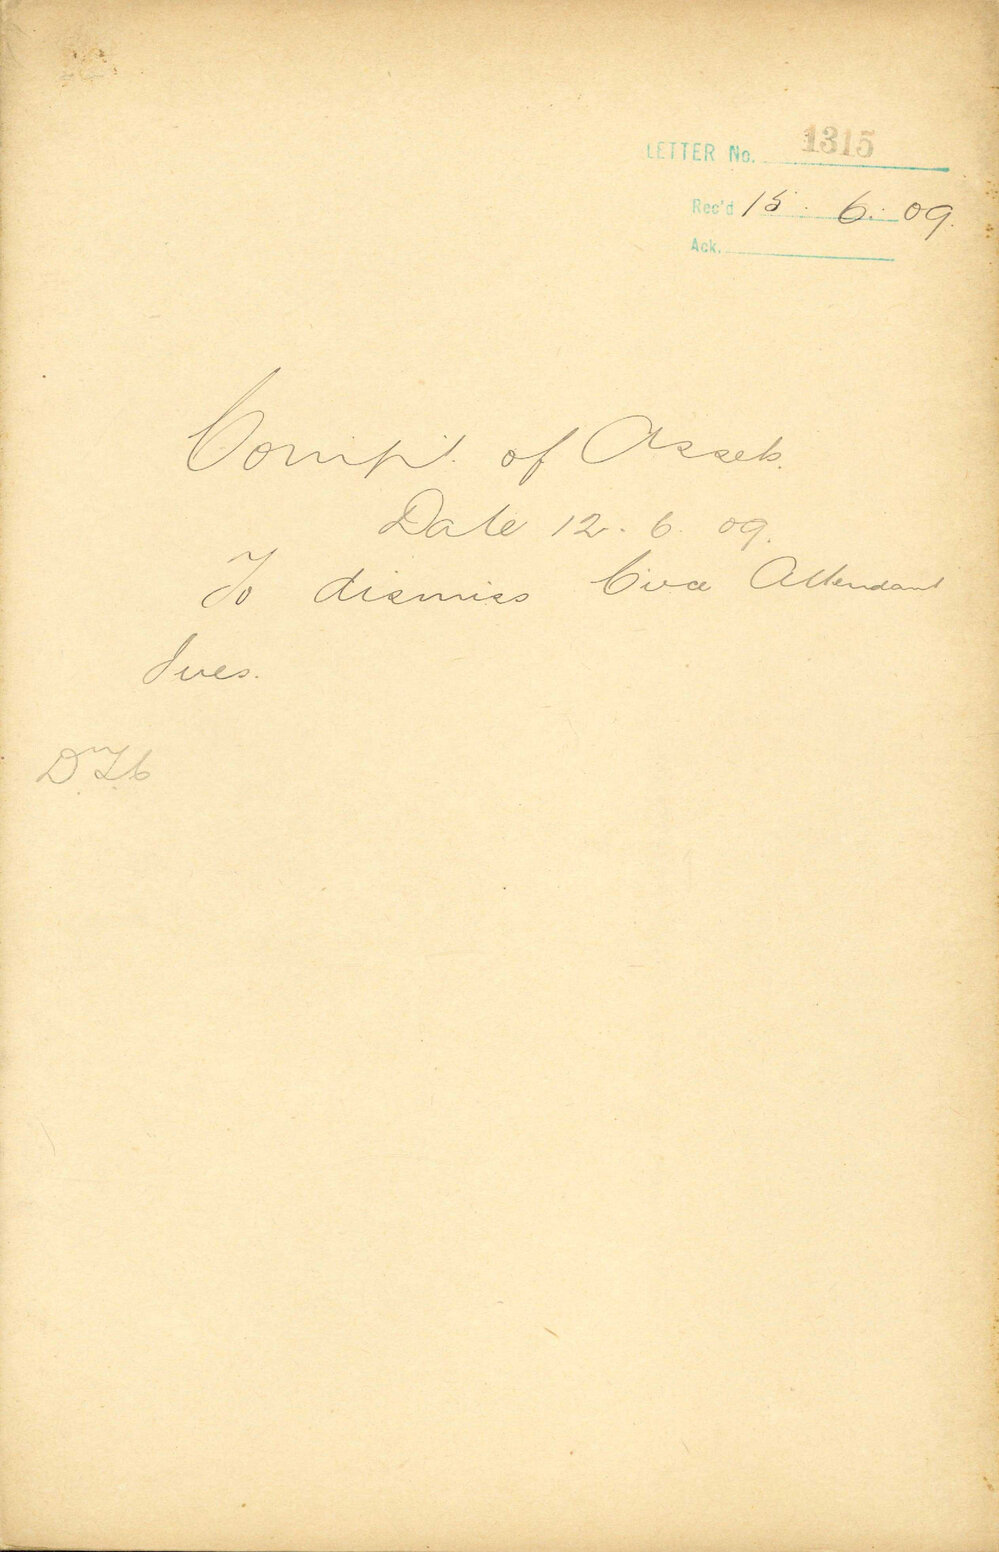 LETTER No. 1315
Rec'd 15. 6. 09.
Ack.
Compt. of Assets.
Date 12. 6. 09.
To dismiss Attendant
Ives.